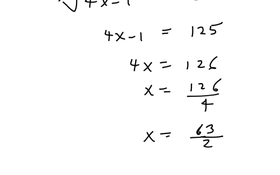 √4x-1
4x-1 = 125
4x = 126
x = 126/4
x = 63/2